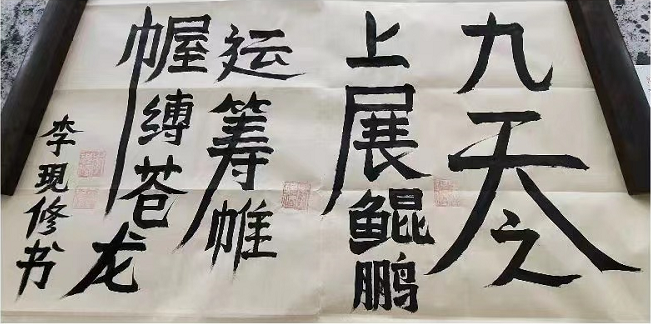 九天之
上展鲲鹏
运筹帷
幄缚苍龙
李现修书